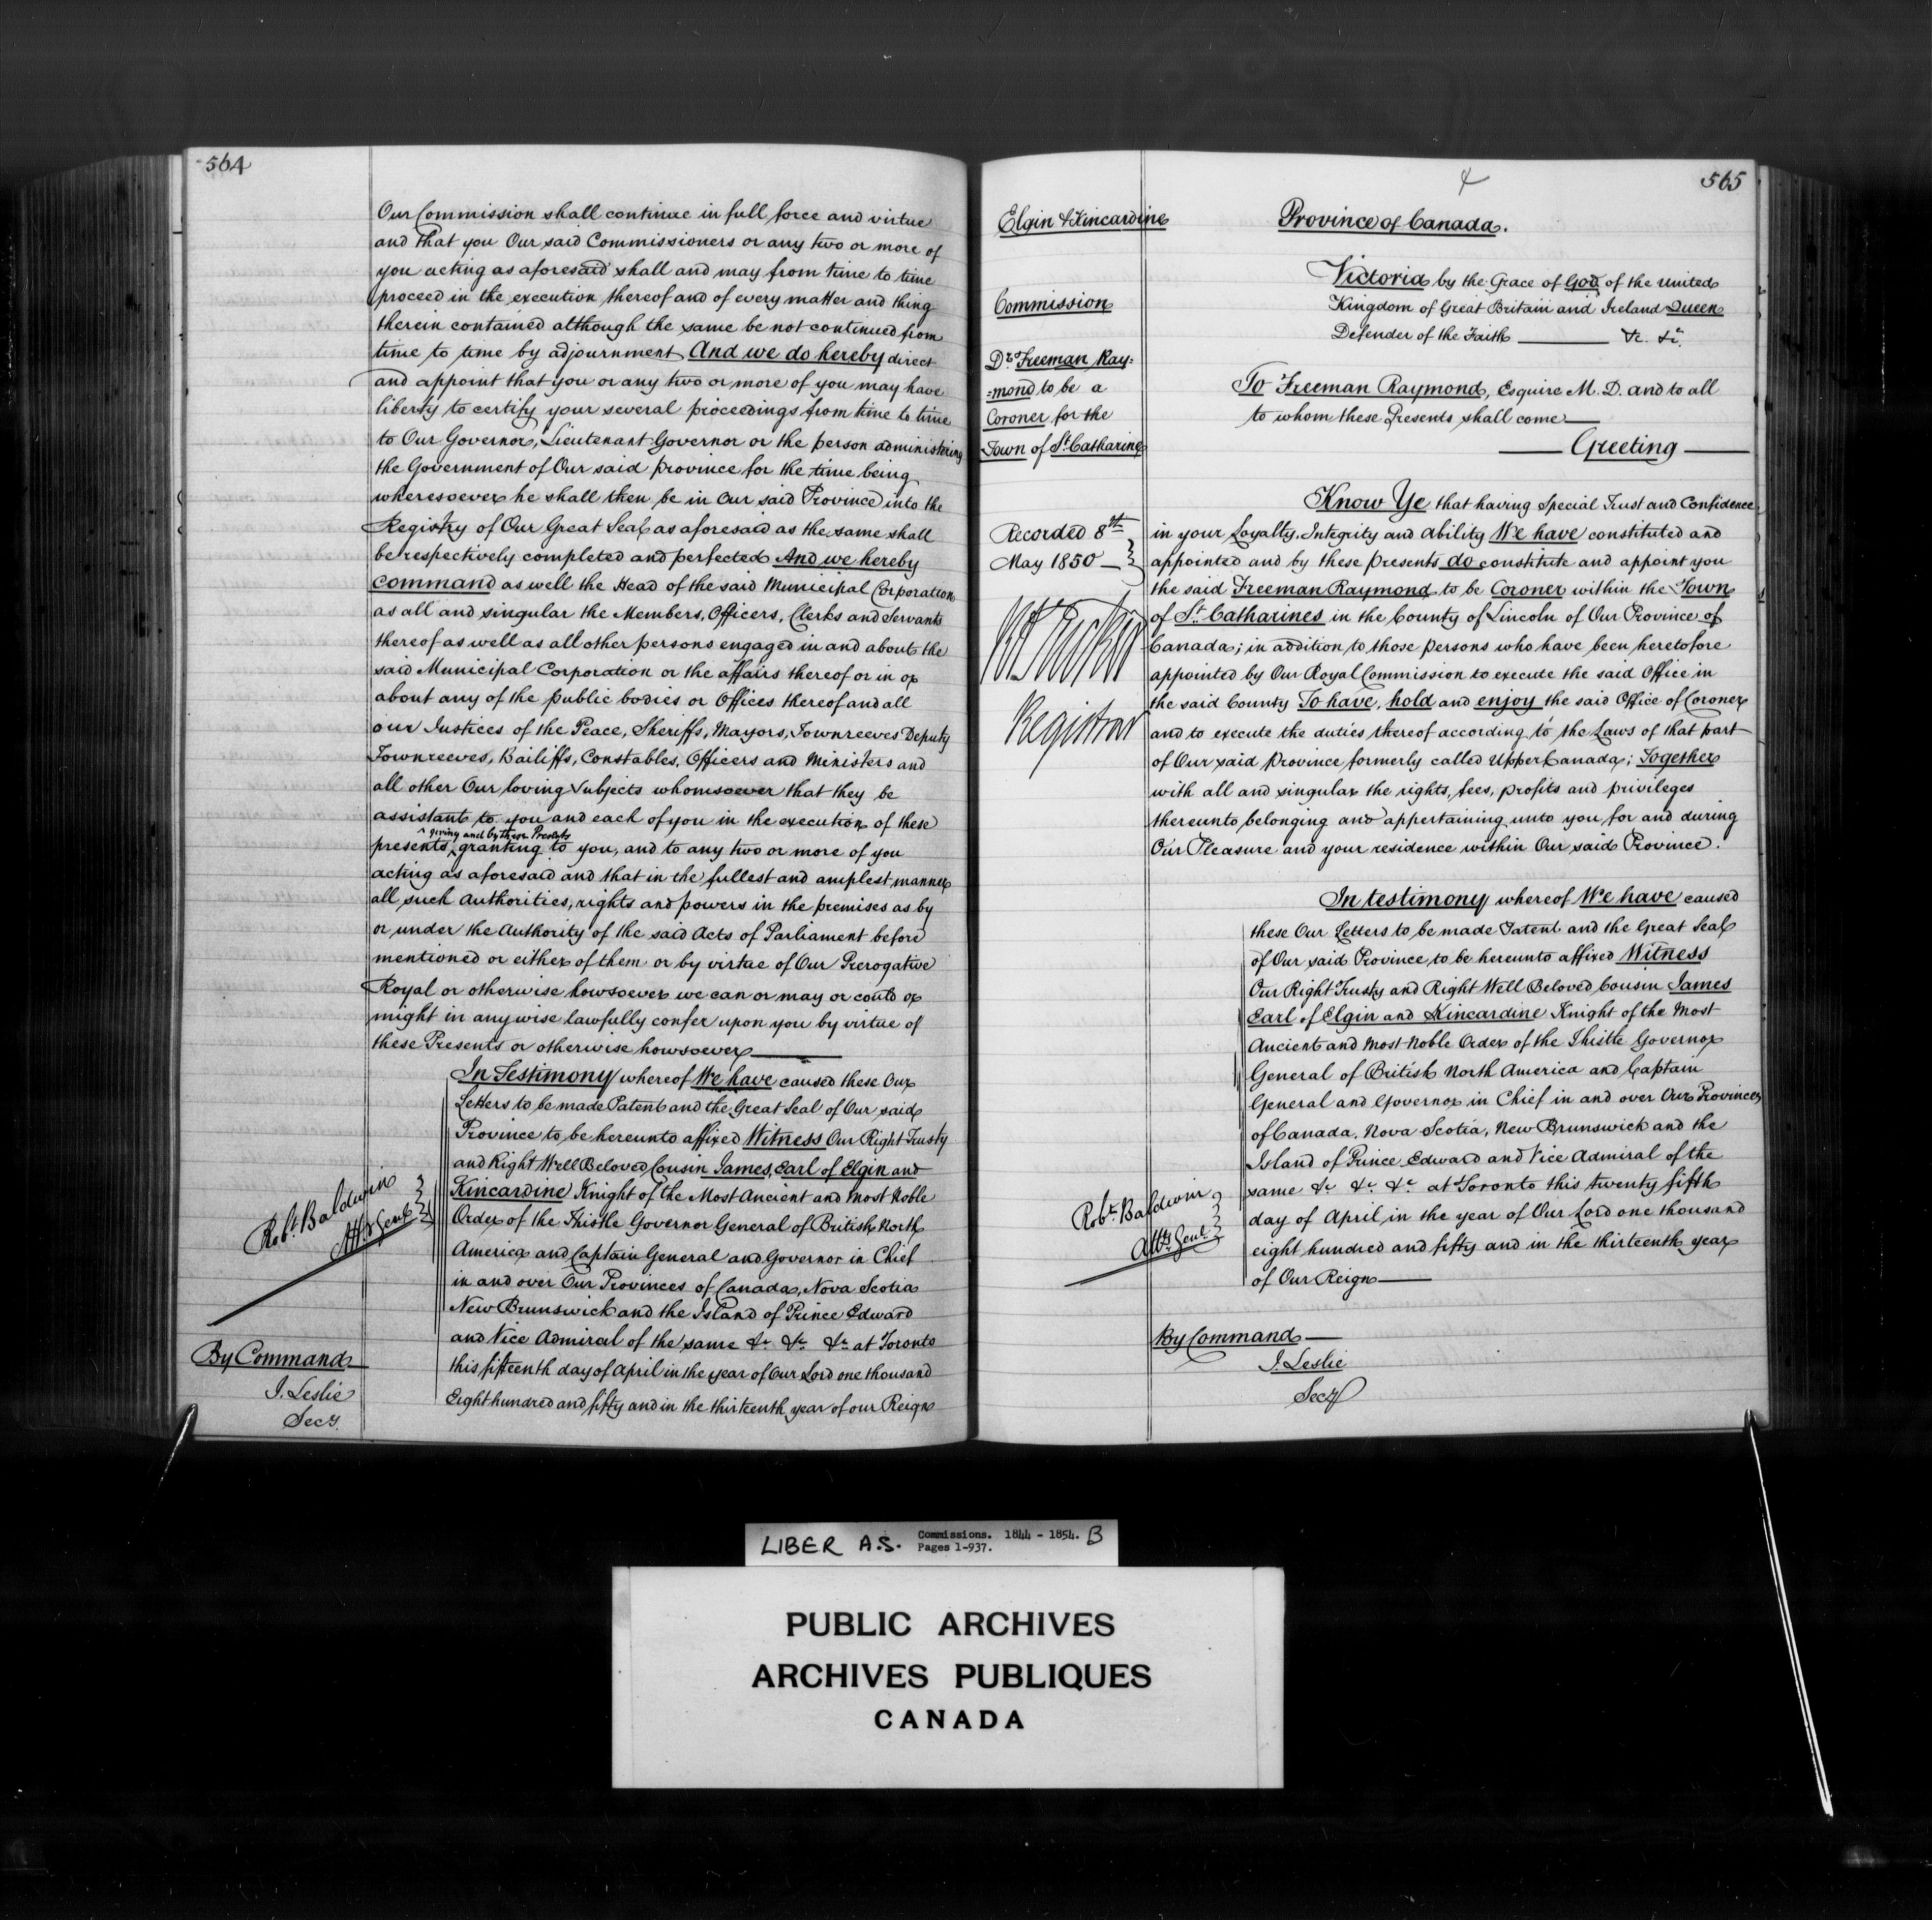 564
Our Commission shall continue in full force and virtue
and that you Our said Commissioners or any two or more of
you acting as aforesaid shall and may from time to time
proceed in the execution thereof and of every matter and thing
therein contained although the same be not continued from
time to time by adjournment And we do hereby direct
and appoint that you or any two or more of you may have
liberty to certify your several proceedings from time to time
to Our Governor, Lieutenant Governor or the person administering
the Government of Our said province for the time being
wheresoever he shall then be in Our said Province into the
Registry of Our Great Seal as aforesaid as the same shall
be respectively completed and perfected And we hereby
command as well the Head of the said Municipal Corporation
as all and singular the Members, Officers, Clerks and Servants
thereof as well as all other persons engaged in and about the
said Municipal Corporation or the affairs thereof or in or
about any of the public bodies or Offices thereof and all
our Justices of the Peace, Sheriffs, Mayors, Townreeves Deputy
Townreeves, Bailiffs, Constables, Officers and Ministers and
all other Our loving Subjects whomsoever that they be
assistant to you and each of you in the execution of these
giving and by these Presents
presents granting to you, and to any two or more of you
acting as aforesaid and that in the fullest and amplest manner
all such authorities, rights and powers in the premises as by
or under the Authority of the said Acts of Parliament before
mentioned or either of them or by virtue of Our Prerogative
Royal or otherwise howsoever we can or may or could or
might in anywise lawfully confer upon you by virtue of
these Presents or otherwise howsoever
In Testimony whereof We have caused these Our
Letters to be made Patent and the Great Seal of Our said
Province to be hereunto affixed Witness Our Right Trusty
and Right Well Beloved Cousin James, Earl of Elgin and
Kincardine Knight of the Most Ancient and Most Noble
Order of the Thistle Governor General of British North
America and Captain General and Governor in Chief
in and over Our Provinces of Canada, Nova Scotia
New Brunswick and the Island of Prince Edward
and Vice Admiral of the same &c &c &c at Toronto
this fifteenth day of April in the year of Our Lord one thousand
Eight hundred and fifty and in the thirteenth year of our Reign
Robt. Baldwin
Atty Genl.
By Command
J. Leslie
Secy.
565
Elgin & Kincardine
Commission
Dr. Freeman Ray=
=mond to be a
Coroner for the
Town of St. Catharine
Recorded 8th
May 1850
Registrar
Province of Canada.
Victoria by the Grace of God of the United
Kingdom of Great Britain and Ireland Queen
Defender of the Faith &c. &c.
To Freeman Raymond, Esquire M. D. and to all
to whom these Presents shall come
Greeting
Know Ye that having Special Trust and Confidence
in your Loyalty, Integrity and Ability We have constituted and
appointed and by these Presents do constitute and appoint you
the said Freeman Raymond to be Coroner within the Town
of St. Catharines in the County of Lincoln of Our Province of
Canada; in addition to those Persons who have been heretofore
appointed by Our Royal Commission to execute the said Office in
the said County To have, hold and enjoy the said Office of Coroner
and to execute the duties thereof according to the Laws of that part
of Our said Province formerly called Upper Canada; Together
with all and singular the rights, fees, profits and privileges
thereunto belonging and appertaining unto you for and during
Our Pleasure and your residence within Our said Province.
In testimony whereof We have caused
these Our Letters to be made Patent and the Great Seal
of Our said Province to be hereunto affixed Witness
Our Right Trusty and Right Well Beloved Cousin James
Earl of Elgin and Kincardine Knight of the Most
Ancient and Most Noble Order of the Thistle Governor
General of British North America and Captain
General and Governor in Chief in and over Our Provinces
of Canada, Nova Scotia, New Brunswick and the
Island of Prince Edward and Vice Admiral of the
same &c &c &c at Toronto this twenty fifth
day of April in the year of Our Lord one thousand
eight hundred and fifty and in the thirteenth year
of Our Reign
Robt. Baldwin
Atty. Genl.
By Command
J. Leslie
Secy
LIBER A.S. Commissions. 1844 - 1854. B
Pages 1-937.
PUBLIC ARCHIVES
ARCHIVES PUBLIQUES
CANADA